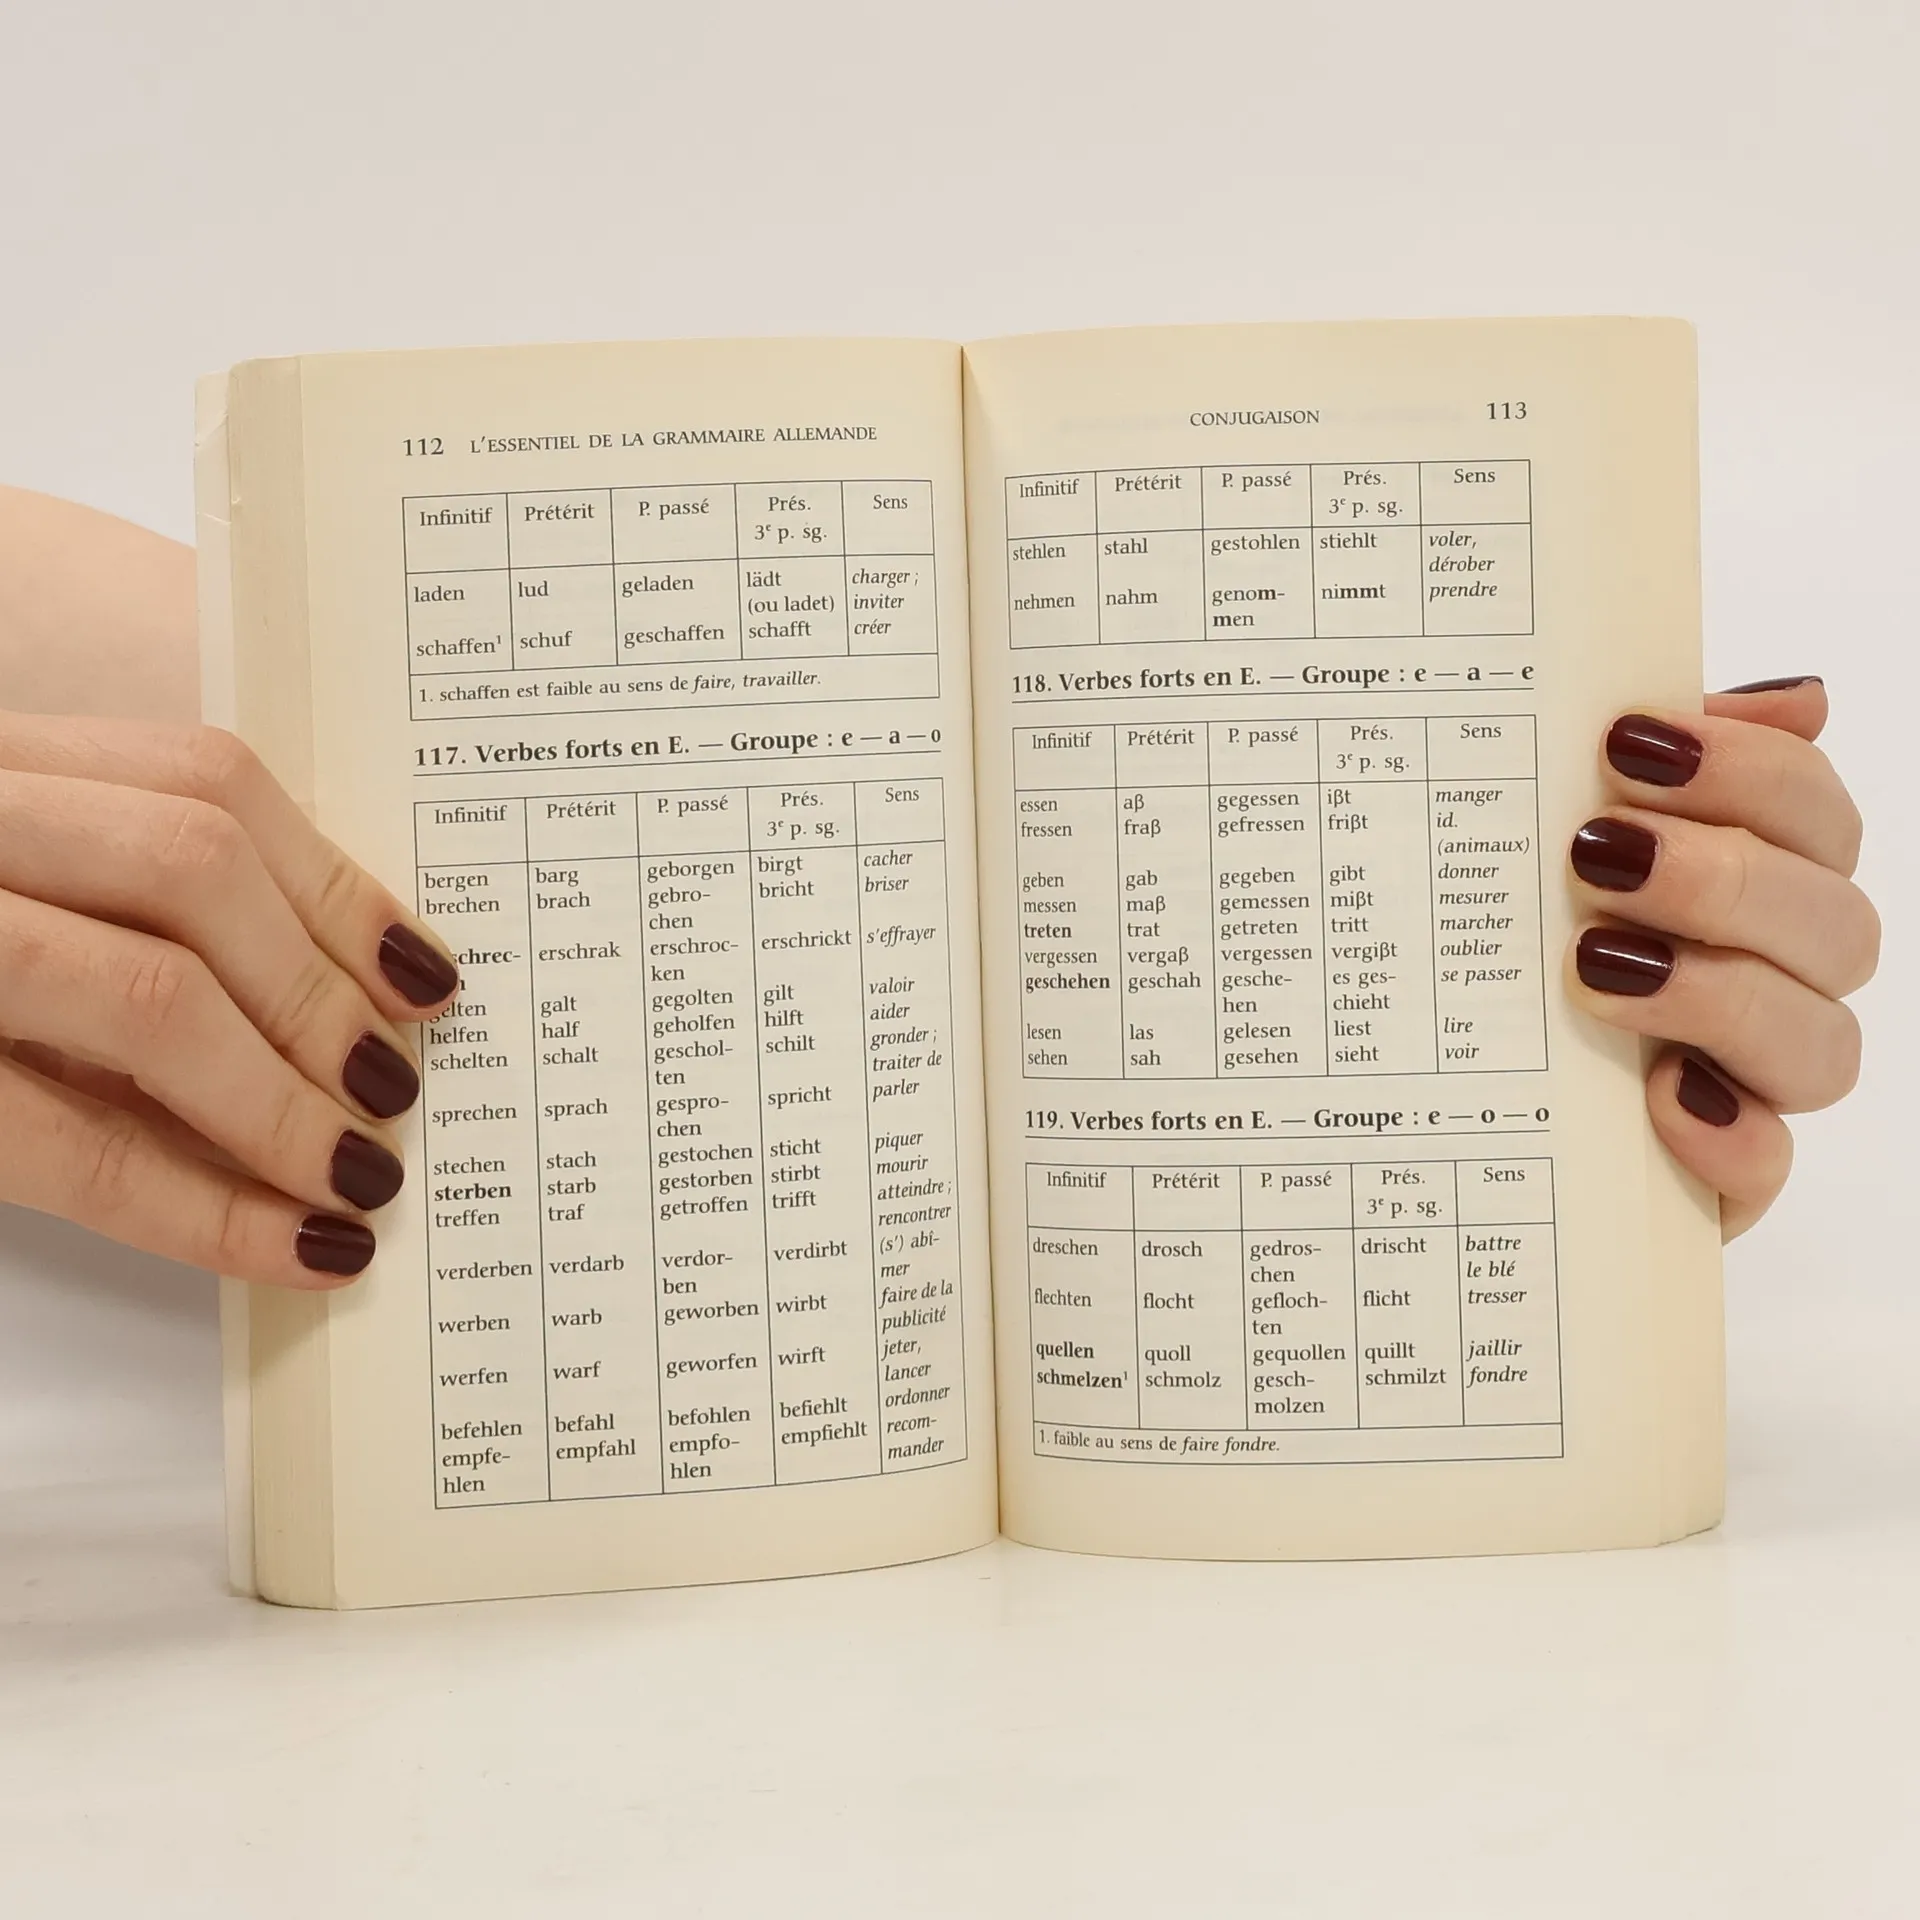 112 L'ESSENTIEL DE LA GRAMMAIRE ALLEMANDE
Infinitif Prétérit P. passé Prés. Sens
3e p. sg.
laden lud geladen lädt charger ;
(ou ladet) inviter
schaffen¹ schuf geschaffen schafft créer
1. schaffen est faible au sens de faire, travailler.
117. Verbes forts en E. — Groupe : e — a — o
Infinitif Prétérit P. passé Prés. Sens
3e p. sg.
bergen barg geborgen birgt cacher
brechen brach gebro- bricht briser
chen
schrec- erschrak erschroc- erschrickt s'effrayer
ken
gelten galt gegolten gilt valoir
helfen half geholfen hilft aider
schelten schalt geschol- schilt gronder ;
ten traiter de
sprechen sprach gespro- spricht parler
chen
stechen stach gestochen sticht piquer
sterben starb gestorben stirbt mourir
treffen traf getroffen trifft atteindre ;
rencontrer
verderben verdarb verdor- verdirbt (s') abî-
ben mer
werben warb geworben wirbt faire de la
publicité
werfen warf geworfen wirft jeter,
lancer
befehlen befahl befohlen befiehlt ordonner
empfe- empfahl empfo- empfiehlt recom-
hlen hlen mander
CONJUGAISON 113
Infinitif Prétérit P. passé Prés. Sens
3e p. sg.
stehlen stahl gestohlen stiehlt voler,
dérober
nehmen nahm genom- nimmt prendre
men
118. Verbes forts en E. — Groupe : e — a — e
Infinitif Prétérit P. passé Prés. Sens
3e p. sg.
essen aß gegessen ißt manger
fressen fraß gefressen frißt id.
(animaux)
geben gab gegeben gibt donner
messen maß gemessen mißt mesurer
treten trat getreten tritt marcher
vergessen vergaß vergessen vergißt oublier
geschehen geschah gesche- es ges- se passer
hen chieht
lesen las gelesen liest lire
sehen sah gesehen sieht voir
119. Verbes forts en E. — Groupe : e — o — o
Infinitif Prétérit P. passé Prés. Sens
3e p. sg.
dreschen drosch gedros- drischt battre
chen le blé
flechten flocht gefloch- flicht tresser
ten
quellen quoll gequollen quillt jaillir
schmelzen¹ schmolz gesch- schmilzt fondre
molzen
1. faible au sens de faire fondre.